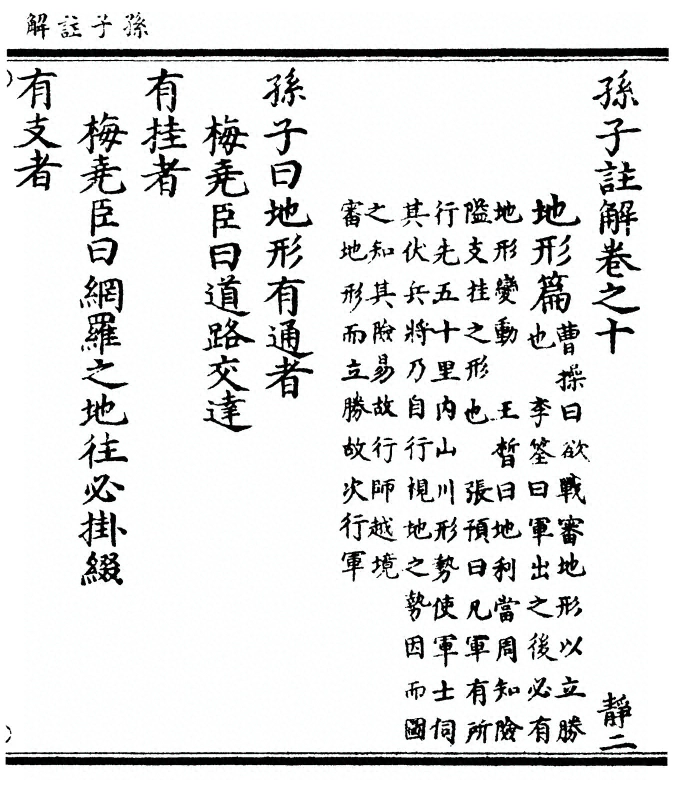 孫子註解
孫子註解卷之十 靜二
地形篇
曹操曰欲戰審地形以立勝
也 李筌曰軍出之後必有
地形變動 王晳曰地利當周知險
隘支挂之形也 張預曰凡軍有所
行先五十里內山川形勢使軍士伺
其伏兵將乃自行視地之勢因而圖
之知其險易故行師越境
審地形而立勝故次行軍
孫子曰地形有通者
梅堯臣曰道路交達
有挂者
梅堯臣曰網羅之地往必掛綴
有支者